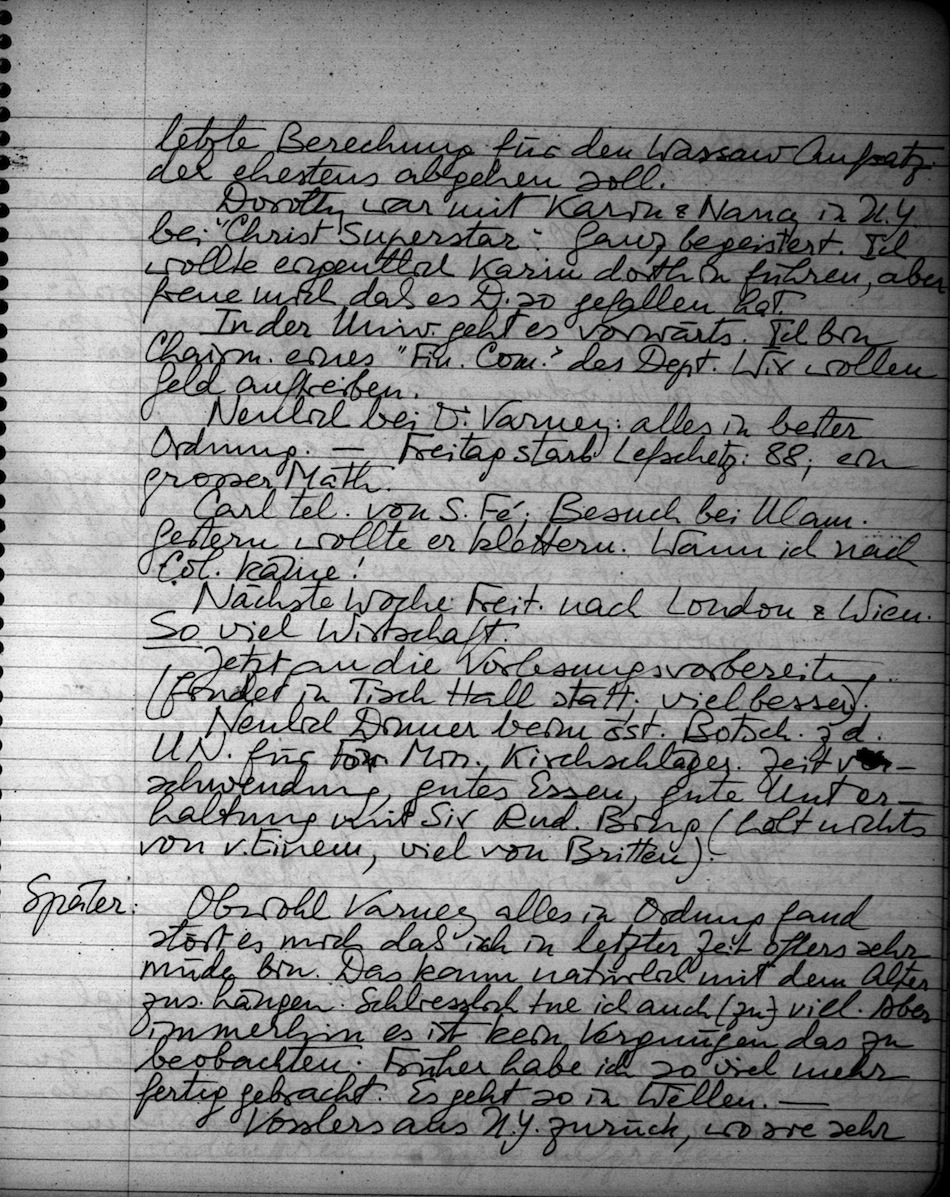 letzte Berechnung für den Warsaw Aufsatz
der ehestens abgehen soll.
Dorothy war mit Karin & Nancy in N.Y.
bei "Christ Superstar". Ganz begeistert. Ich
wollte eigentlich Karin dorthin führen, aber
freue mich daß es D. so gefallen hat.
In der Univ. geht es vorwärts. Ich bin
Chairm. eines "Fin. Com." des Dept. Wir wollen
Geld auftreiben.
Neulich bei D. Varney: alles in bester
Ordnung. — Freitag starb Lefschetz: 88; ein
grosser Math.
Carl tel. von S. Fé; Besuch bei Ulam.
Gestern wollte er klettern. Wann ich nach
Col. käme!
Nächste Woche Freit. nach London & Wien.
So viel Wirtschaft.
Jetzt an die Vorlesungsvorbereitg.
(findet in Tisch Hall statt; viel besser).
Neulich Dinner beim öst. Botsch. z d.
U.N. für For. Min. Kirchschläger. Zeitver-
schwendung, gutes Essen, gute Unter-
haltung mit Sir Rud. Bing (hält nichts
von v. Einem, viel von Britten).
Später: Obwohl Varney alles in Ordnung fand
stört es mich daß ich in letzter Zeit öfters sehr
müde bin. Das kann natürlich mit dem Alter
zus. hängen. Schliesslich tue ich auch (zu) viel. Aber
immerhin es ist kein Vergnügen das zu
beobachten. Früher habe ich so viel mehr
fertig gebracht. Es geht so in Wellen. —
Vosslers aus N.Y. zurück, wo sie sehr